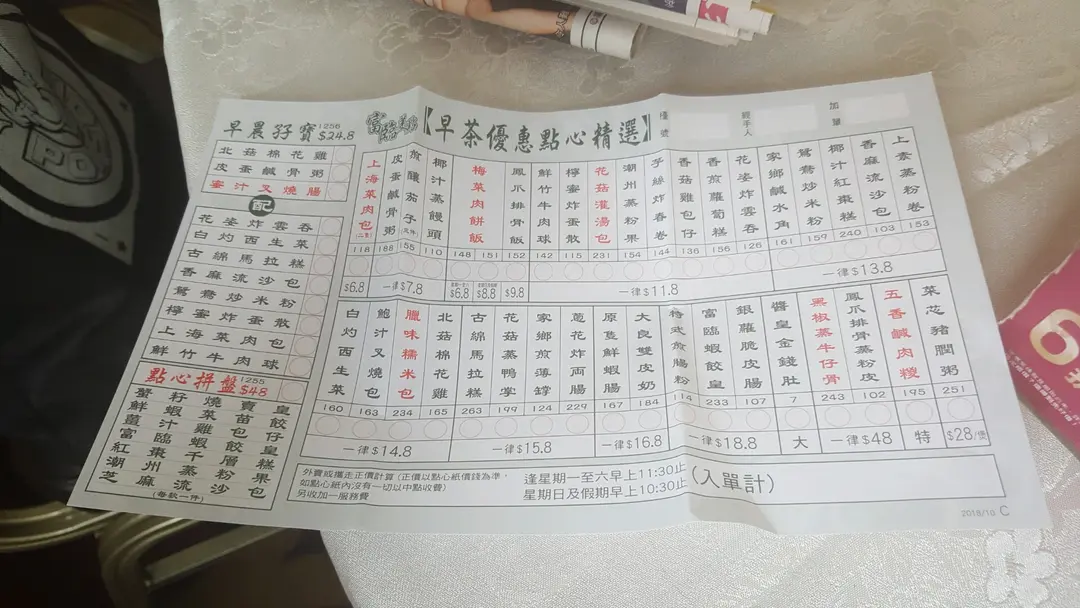 早晨孖寶 1256 $24.8
北菇棉花雞
皮蛋鹹骨粥
蜜汁叉燒腸
配
花姿炸雲吞
白灼西生菜
古綿馬拉糕
香麻流沙包
鴛鴦炒米粉
檸蜜炸蛋散
上海菜肉包
鮮竹牛肉球
點心拼盤 1255 $48
蟹籽燒賣皇
鮮蝦菜苗餃
薑汁叉包仔
富臨蝦餃皇
紅棗千層糕
潮州蒸粉果
芝麻流沙包
(每款一件)
富臨美膳
【早茶優惠點心精選】
檯號
經手人
加單
上海菜肉包(二隻)
皮蛋鹹骨粥
煎釀茄子(三件)
椰汁蒸饅頭
梅菜肉餅飯
鳳爪排骨飯
鮮竹牛肉球
檸蜜炸蛋散
花菇灌湯包
潮州蒸粉果
芋絲炸春卷
香菇雞包仔
香煎蘿蔔糕
花姿炸雲吞
家鄉鹹水角
鴛鴦炒米粉
椰汁紅棗糕
香麻流沙包
上素蒸粉卷
118 188 155 110 148 151 152 142 115 231 154 144 136 156 126 161 159 240 103 153
$6.8 一律$7.8 $6.8 $8.8 $9.8 一律$11.8 一律$13.8
白灼西生菜
鮑汁叉燒包
臘味糯米包
北菇棉花雞
古綿馬拉糕
花菇蒸鴨掌
家鄉煎薄罉
蔥花炸兩腸
原隻鮮蝦腸
大良雙皮奶
特式煎腸粉
富臨蝦餃皇
銀蘿脆皮腸
醬皇金錢肚
黑椒蒸牛仔骨
鳳爪排骨蒸粉皮
五香鹹肉糉
菜芯豬膶粥
160 163 234 165 263 199 124 229 167 184 114 233 107 7 243 102 195 251
一律$14.8 一律$15.8 一律$16.8 一律$18.8 大 一律$48 特 $28/煲
外賣或攜走正價計算(正價以點心紙價錢為準,
如點心紙內沒有一切以中點收費)
另收加一服務費
逢星期一至六早上11:30止
星期日及假期早上10:30止
(入單計)
2018/10 C